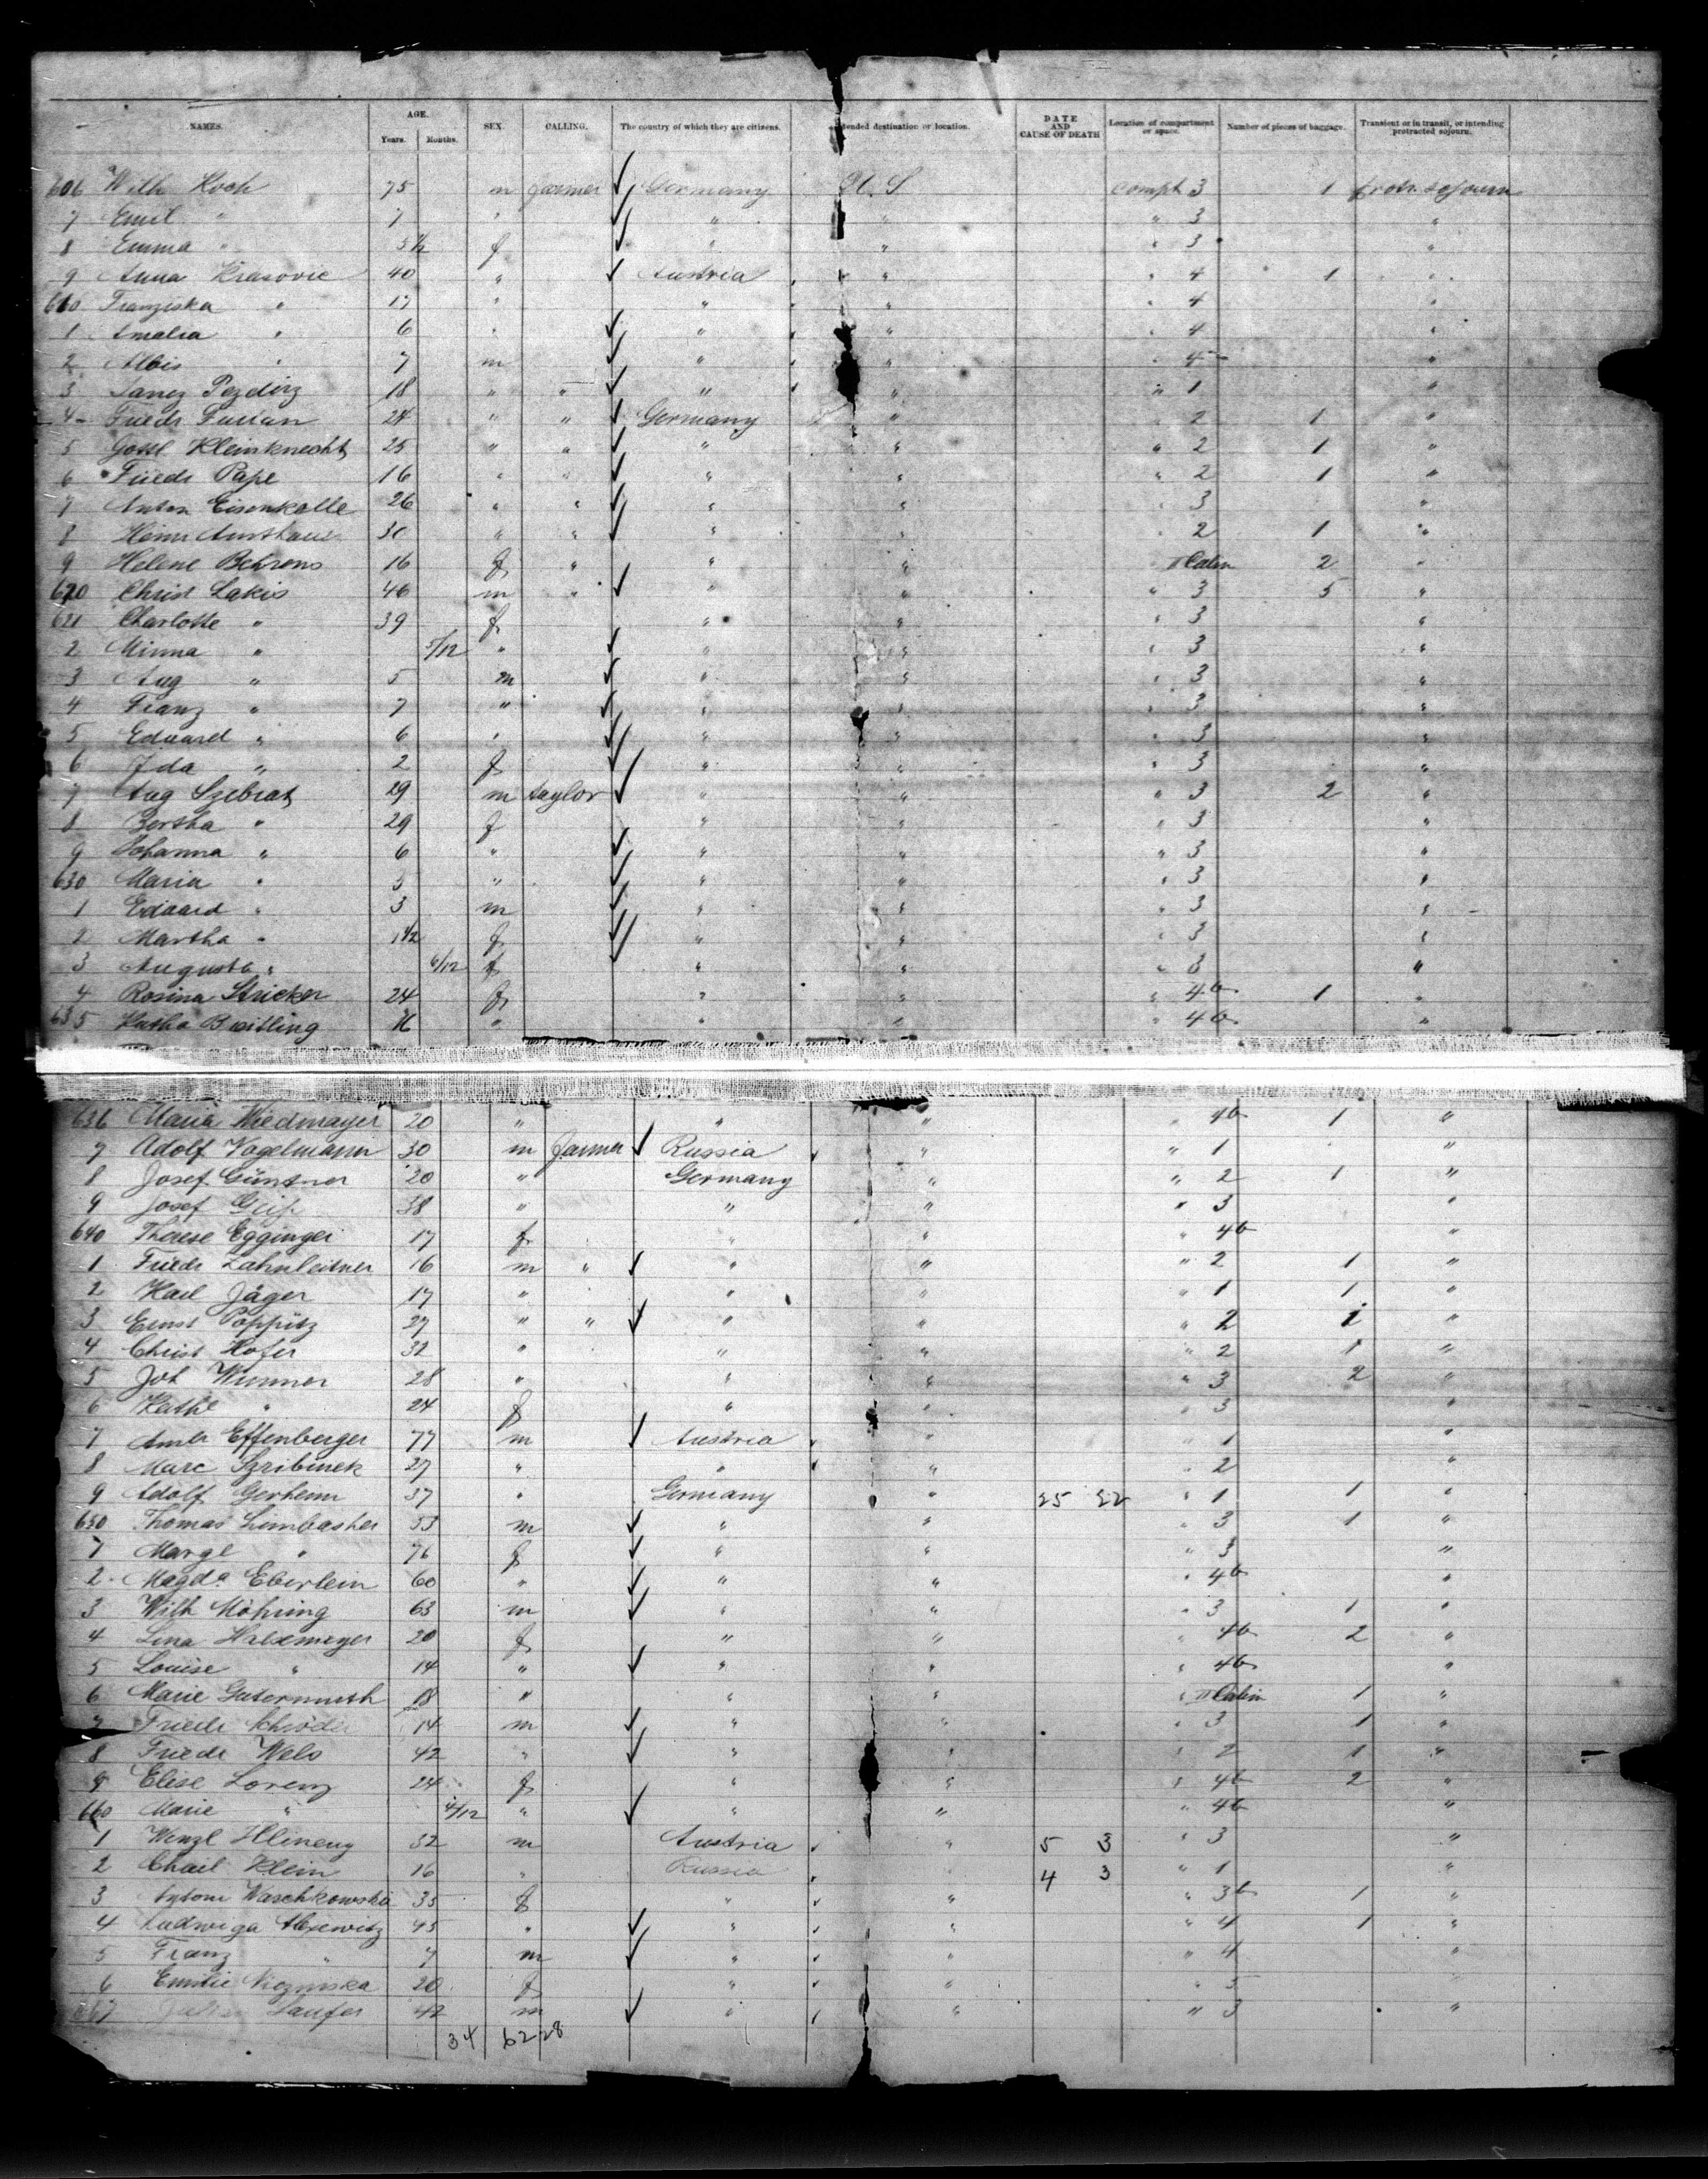 NAMES. AGE. Years. Months. SEX. CALLING. The country of which they are citizens. Intended destination or location. DATE AND CAUSE OF DEATH Location of compartment or space. Number of pieces of baggage. Transient or in transit, or intending protracted sojourn.
606 Wilh Koch 75 m farmer ✓ Germany U. S. compt 3 1 protr. sojourn
7 Emil " 7 " ✓ " " " 3 "
8 Emma " 5½ f ✓ " " " 3 "
9 Anna Krasovic 40 " ✓ Austria " " 4 1 "
610 Franziska " 17 " " " " 4 "
1 Amalia " 6 " ✓ " " " 4 "
2 Albis " 7 m ✓ " " " 4 "
3 Janez Pezdirz 18 " " ✓ " " " 1 "
4 Friedr 24 " " ✓ Germany " " 2 1 "
5 Gottl Kleinknecht 25 " " ✓ " " " 2 1 "
6 Friedr Pape 16 " " ✓ " " " 2 1 "
7 Anton Eisenkolle 26 " " ✓ " " " 3 "
8 Heinr 30 " " ✓ " " " 2 1 "
9 Helene Behrens 16 f " " " II Cabin 2 "
620 Christ Lakis 46 m " ✓ " " " 3 5 "
621 Charlotte " 39 f " " " 3 "
2 Minna " 5/12 " ✓ " " " 3 "
3 Aug " 5 m ✓ " " " 3 "
4 Franz " 7 " ✓ " " " 3 "
5 Eduard " 6 " ✓ " " " 3 "
6 Ida " 2 f ✓ " " " 3 "
7 Aug Szebrat 29 m taylor ✓ " " " 3 2 "
8 Bertha " 29 f " " " 3 "
9 Johanna " 6 " ✓ " " " 3 "
630 Maria " 5 " ✓ " " " 3 "
1 Eduard " 3 m ✓ " " " 3 "
2 Martha " 1½ f ✓ " " " 3 "
3 Augusta " 6/12 f " " " 3 "
4 Rosina Stricker 24 f " " " 4b 1 "
635 Katha Breitling 16 " " " " 4b "
636 Maria Wiedmayer 20 " " " " 4b 1 "
7 Adolf Vogelmann 30 m farmer ✓ Russia " " 1 "
8 Josef Güntner 20 " Germany " " 2 1 "
9 Josef Geiß 38 " " " " 3 "
640 Therese Egginger 17 f " " " 4b "
1 Friedr Zahnleitner 16 m " ✓ " " " 2 1 "
2 Karl Jäger 17 " " " " 1 1 "
3 Ernst Poppitz 27 " " ✓ " " " 2 1 "
4 Christ Hofer 32 " " " " 2 1 "
5 Joh Wimmer 28 " " " " 3 2 "
6 Kathe " 24 f " " " 3 "
7 Effenberger 77 m ✓ Austria " " 1 "
8 Marc Szribinek 27 " " " " 2 "
9 Adolf Gerhenn 37 " Germany " 25 22 " 1 1 "
650 Thomas Limbacher 53 m ✓ " " " 3 1 "
1 Margt " 76 f ✓ " " " 3 "
2 Magda Eberlein 60 " ✓ " " " 4b "
3 Wilh Möhring 63 m ✓ " " " 3 1 "
4 Lina 20 f " " " 4b 2 "
5 Louise " 14 " ✓ " " " 4b "
6 Marie Gutermuth 18 " " " " II Cabin 1 "
7 Friedr Schröder 14 m ✓ " " " 3 1 "
8 Friedr Wels 42 " ✓ " " " 2 1 "
9 Elise Lorenz 24 f " " " 4b 2 "
660 Marie " 4/12 " ✓ " " " 4b "
1 Wenzl Hlineny 32 m Austria " 5 3 " 3 "
2 Klein 16 " Russia 4 3 " 1 "
3 Antoni Waschkowska 35 f " " " 3b 1 "
4 Ludwiga 45 " ✓ " " " 4 1 "
5 Franz " 7 m ✓ " " " 4 "
6 Emilie 20 f " " " 5 "
667 Laufer 42 m ✓ " " " 3 "
34 62 28